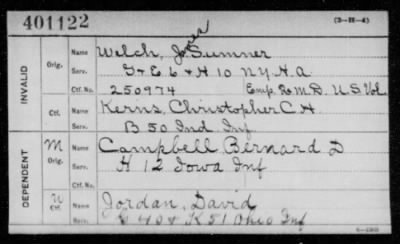 401122 (3-H-4)
INVALID
Orig. Name Welch, Jones Sumner
Serv. G & E 6 & H 10 N.Y.H.A.
Ctf. No. 250974 Emp. Q.M.D. U.S. Vol.
Ctf. Name Kerns, Christopher C H
Serv. B 50 Ind Inf
DEPENDENT
M Orig. Name Campbell Bernard D
Serv. H 12 Iowa Inf
Ctf. No.
W Ctf. Name Jordan, David
Serv. 40 & K 51 Ohio Inf